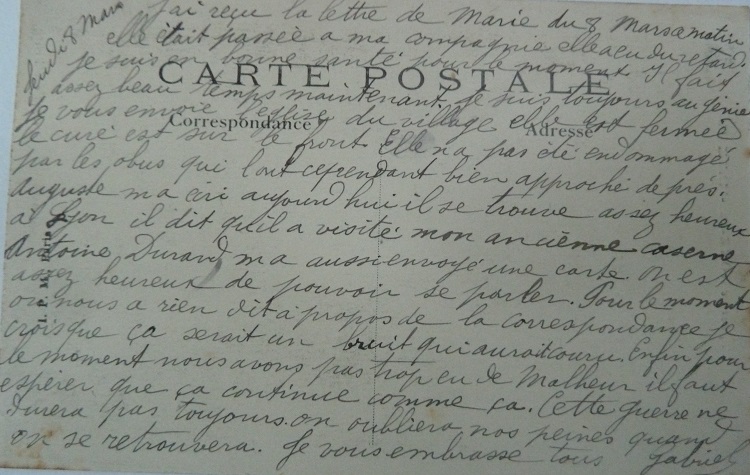 Jeudi 8 Mars
J'ai reçu la lettre de Marie du 8 Mars ce matin
elle était passée a ma compagnie elle a eu du retard.
je suis en bonne santé pour le moment il y fait
CARTE POSTALE
assez beau temps maintenant. je suis toujours au génie
je vous envoie l'église du village elle est fermée
Correspondance
Adresse
le curé est sur le front Elle n'a pas été endommagé
par les obus qui l'ont cependant bien approché de près.
Auguste m'a écri aujourd'hui il se trouve assez heureux
a Lyon il dit qu'il a visité mon ancienne caserne
Antoine Durand m'a aussi envoyé une carte. On est
assez heureux de pouvoir se parler. Pour le moment
on nous a rien dit à propos de la correspondance je
crois que ça serait un bruit qui aurait couru. Enfin pour
le moment nous avons pas trop eu de Malheur il faut
espérer que ça continue comme ça. Cette guerre ne
durera pas toujours. on oubliera nos peines quand
on se retrouvera. Je vous embrasse tous Gabriel